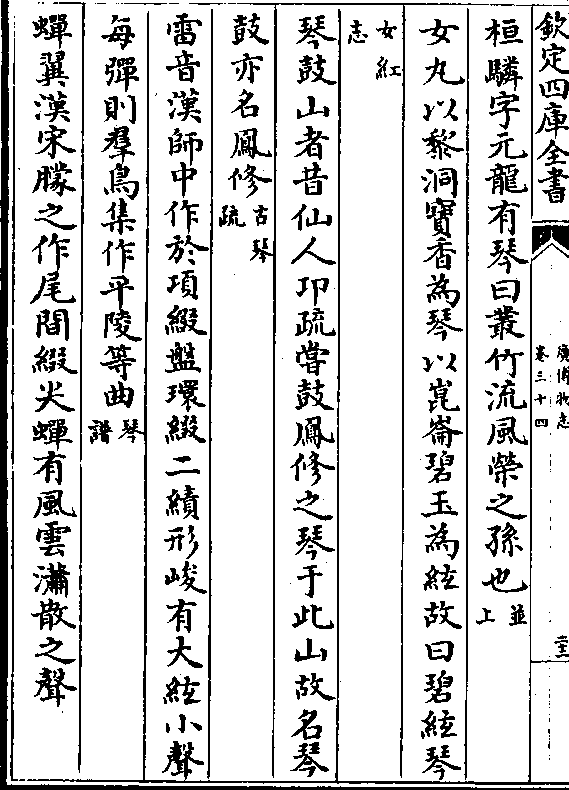 欽定四庫全書
廣博物志
卷三十四
二三
桓驎字元龍有琴曰叢竹流風榮之孫也並上
女丸以黎洞寶香為琴以崑崙碧玉為絃故曰碧絃琴
女紅志
琴鼓山者昔仙人邛疏嘗鼓鳳修之琴于此山故名琴
鼓亦名鳳修古琴疏
雷音漢師中作於項綴盤環綴二績形峻有大絃小聲
每彈則羣鳥集作平陵等曲琴譜
蟬翼漢宋朦之作尾間綴尖蟬有風雲瀟散之聲